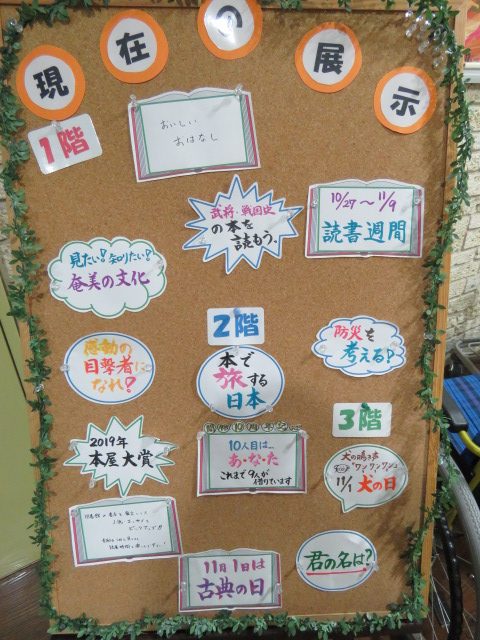 現在の展示
1階
おいしい
おはなし
武将・戦国史
の本を
読もう。
10/27〜11/9
読書週間
見たい!知りたい?
奄美の文化
2階
防災を
考える?
感動の
目撃者に
なれ?
本で
旅する
日本
3階
2019年
本屋大賞
10人目は…
あ・な・た
これまで9人が
借りています
犬の鳴き声
"ワンワンワン"
11/1 犬の日
11月1日は
古典の日
君の名は?